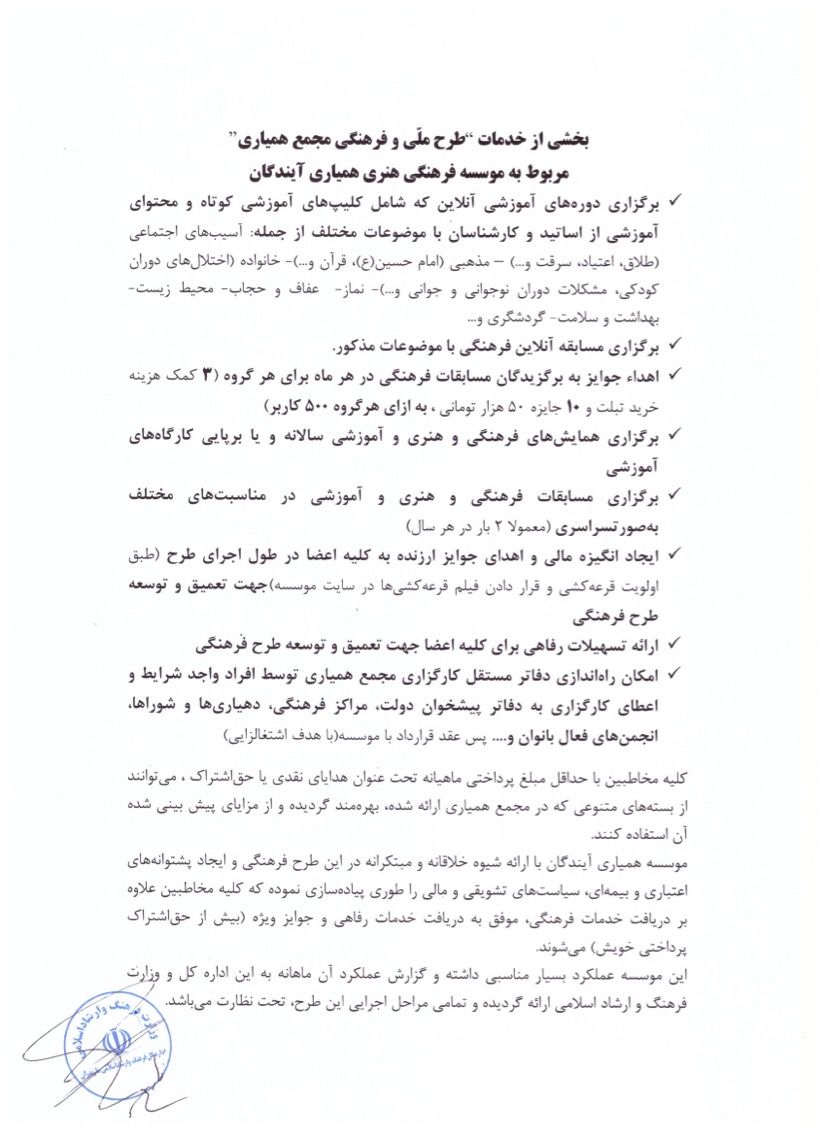 بخشی از خدمات “طرح ملّی و فرهنگی مجمع همیاری”
مربوط به موسسه فرهنگی هنری همیاری آیندگان
✓ برگزاری دوره‌های آموزشی آنلاین که شامل کلیپ‌های آموزشی کوتاه و محتوای
آموزشی از اساتید و کارشناسان با موضوعات مختلف از جمله: آسیب‌های اجتماعی
(طلاق، اعتیاد، سرقت و...) – مذهبی (امام حسین(ع)، قرآن و...)- خانواده (اختلال‌های دوران
کودکی، مشکلات دوران نوجوانی و جوانی و...)- نماز- عفاف و حجاب- محیط زیست-
بهداشت و سلامت- گردشگری و...
✓ برگزاری مسابقه آنلاین فرهنگی با موضوعات مذکور.
✓ اهداء جوایز به برگزیدگان مسابقات فرهنگی در هر ماه برای هر گروه (۳ کمک هزینه
خرید تبلت و ۱۰ جایزه ۵۰ هزار تومانی ، به ازای هرگروه ۵۰۰ کاربر)
✓ برگزاری همایش‌های فرهنگی و هنری و آموزشی سالانه و یا برپایی کارگاه‌های
آموزشی
✓ برگزاری مسابقات فرهنگی و هنری و آموزشی در مناسبت‌های مختلف
به‌صورتسراسری (معمولا ۲ بار در هر سال)
✓ ایجاد انگیزه مالی و اهدای جوایز ارزنده به کلیه اعضا در طول اجرای طرح (طبق
اولویت قرعه‌کشی و قرار دادن فیلم قرعه‌کشی‌ها در سایت موسسه)جهت تعمیق و توسعه
طرح فرهنگی
✓ ارائه تسهیلات رفاهی برای کلیه اعضا جهت تعمیق و توسعه طرح فرهنگی
✓ امکان راه‌اندازی دفاتر مستقل کارگزاری مجمع همیاری توسط افراد واجد شرایط و
اعطای کارگزاری به دفاتر پیشخوان دولت، مراکز فرهنگی، دهیاری‌ها و شوراها،
انجمن‌های فعال بانوان و.... پس عقد قرارداد با موسسه(با هدف اشتغالزایی)
کلیه مخاطبین با حداقل مبلغ پرداختی ماهیانه تحت عنوان هدایای نقدی یا حق‌اشتراک ، می‌توانند
از بسته‌های متنوعی که در مجمع همیاری ارائه شده، بهره‌مند گردیده و از مزایای پیش بینی شده
آن استفاده کنند.
موسسه همیاری آیندگان با ارائه شیوه خلاقانه و مبتکرانه در این طرح فرهنگی و ایجاد پشتوانه‌های
اعتباری و بیمه‌ای، سیاست‌های تشویقی و مالی را طوری پیاده‌سازی نموده که کلیه مخاطبین علاوه
بر دریافت خدمات فرهنگی، موفق به دریافت خدمات رفاهی و جوایز ویژه (بیش از حق‌اشتراک
پرداختی خویش) می‌شوند.
این موسسه عملکرد بسیار مناسبی داشته و گزارش عملکرد آن ماهانه به این اداره کل و وزارت
فرهنگ و ارشاد اسلامی ارائه گردیده و تمامی مراحل اجرایی این طرح، تحت نظارت می‌باشد.
وزارت فرهنگ و ارشاد اسلامی